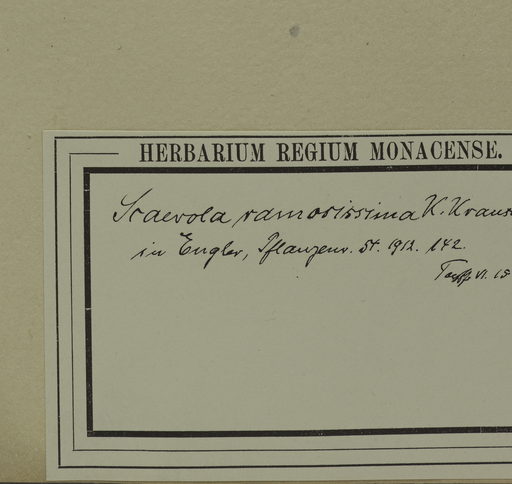 HERBARIUM REGIUM MONACENSE.
Scaevola ramosissima K. Kraus
in Engler, Pflanzenr. 54. 1912. 142.
VI. 19